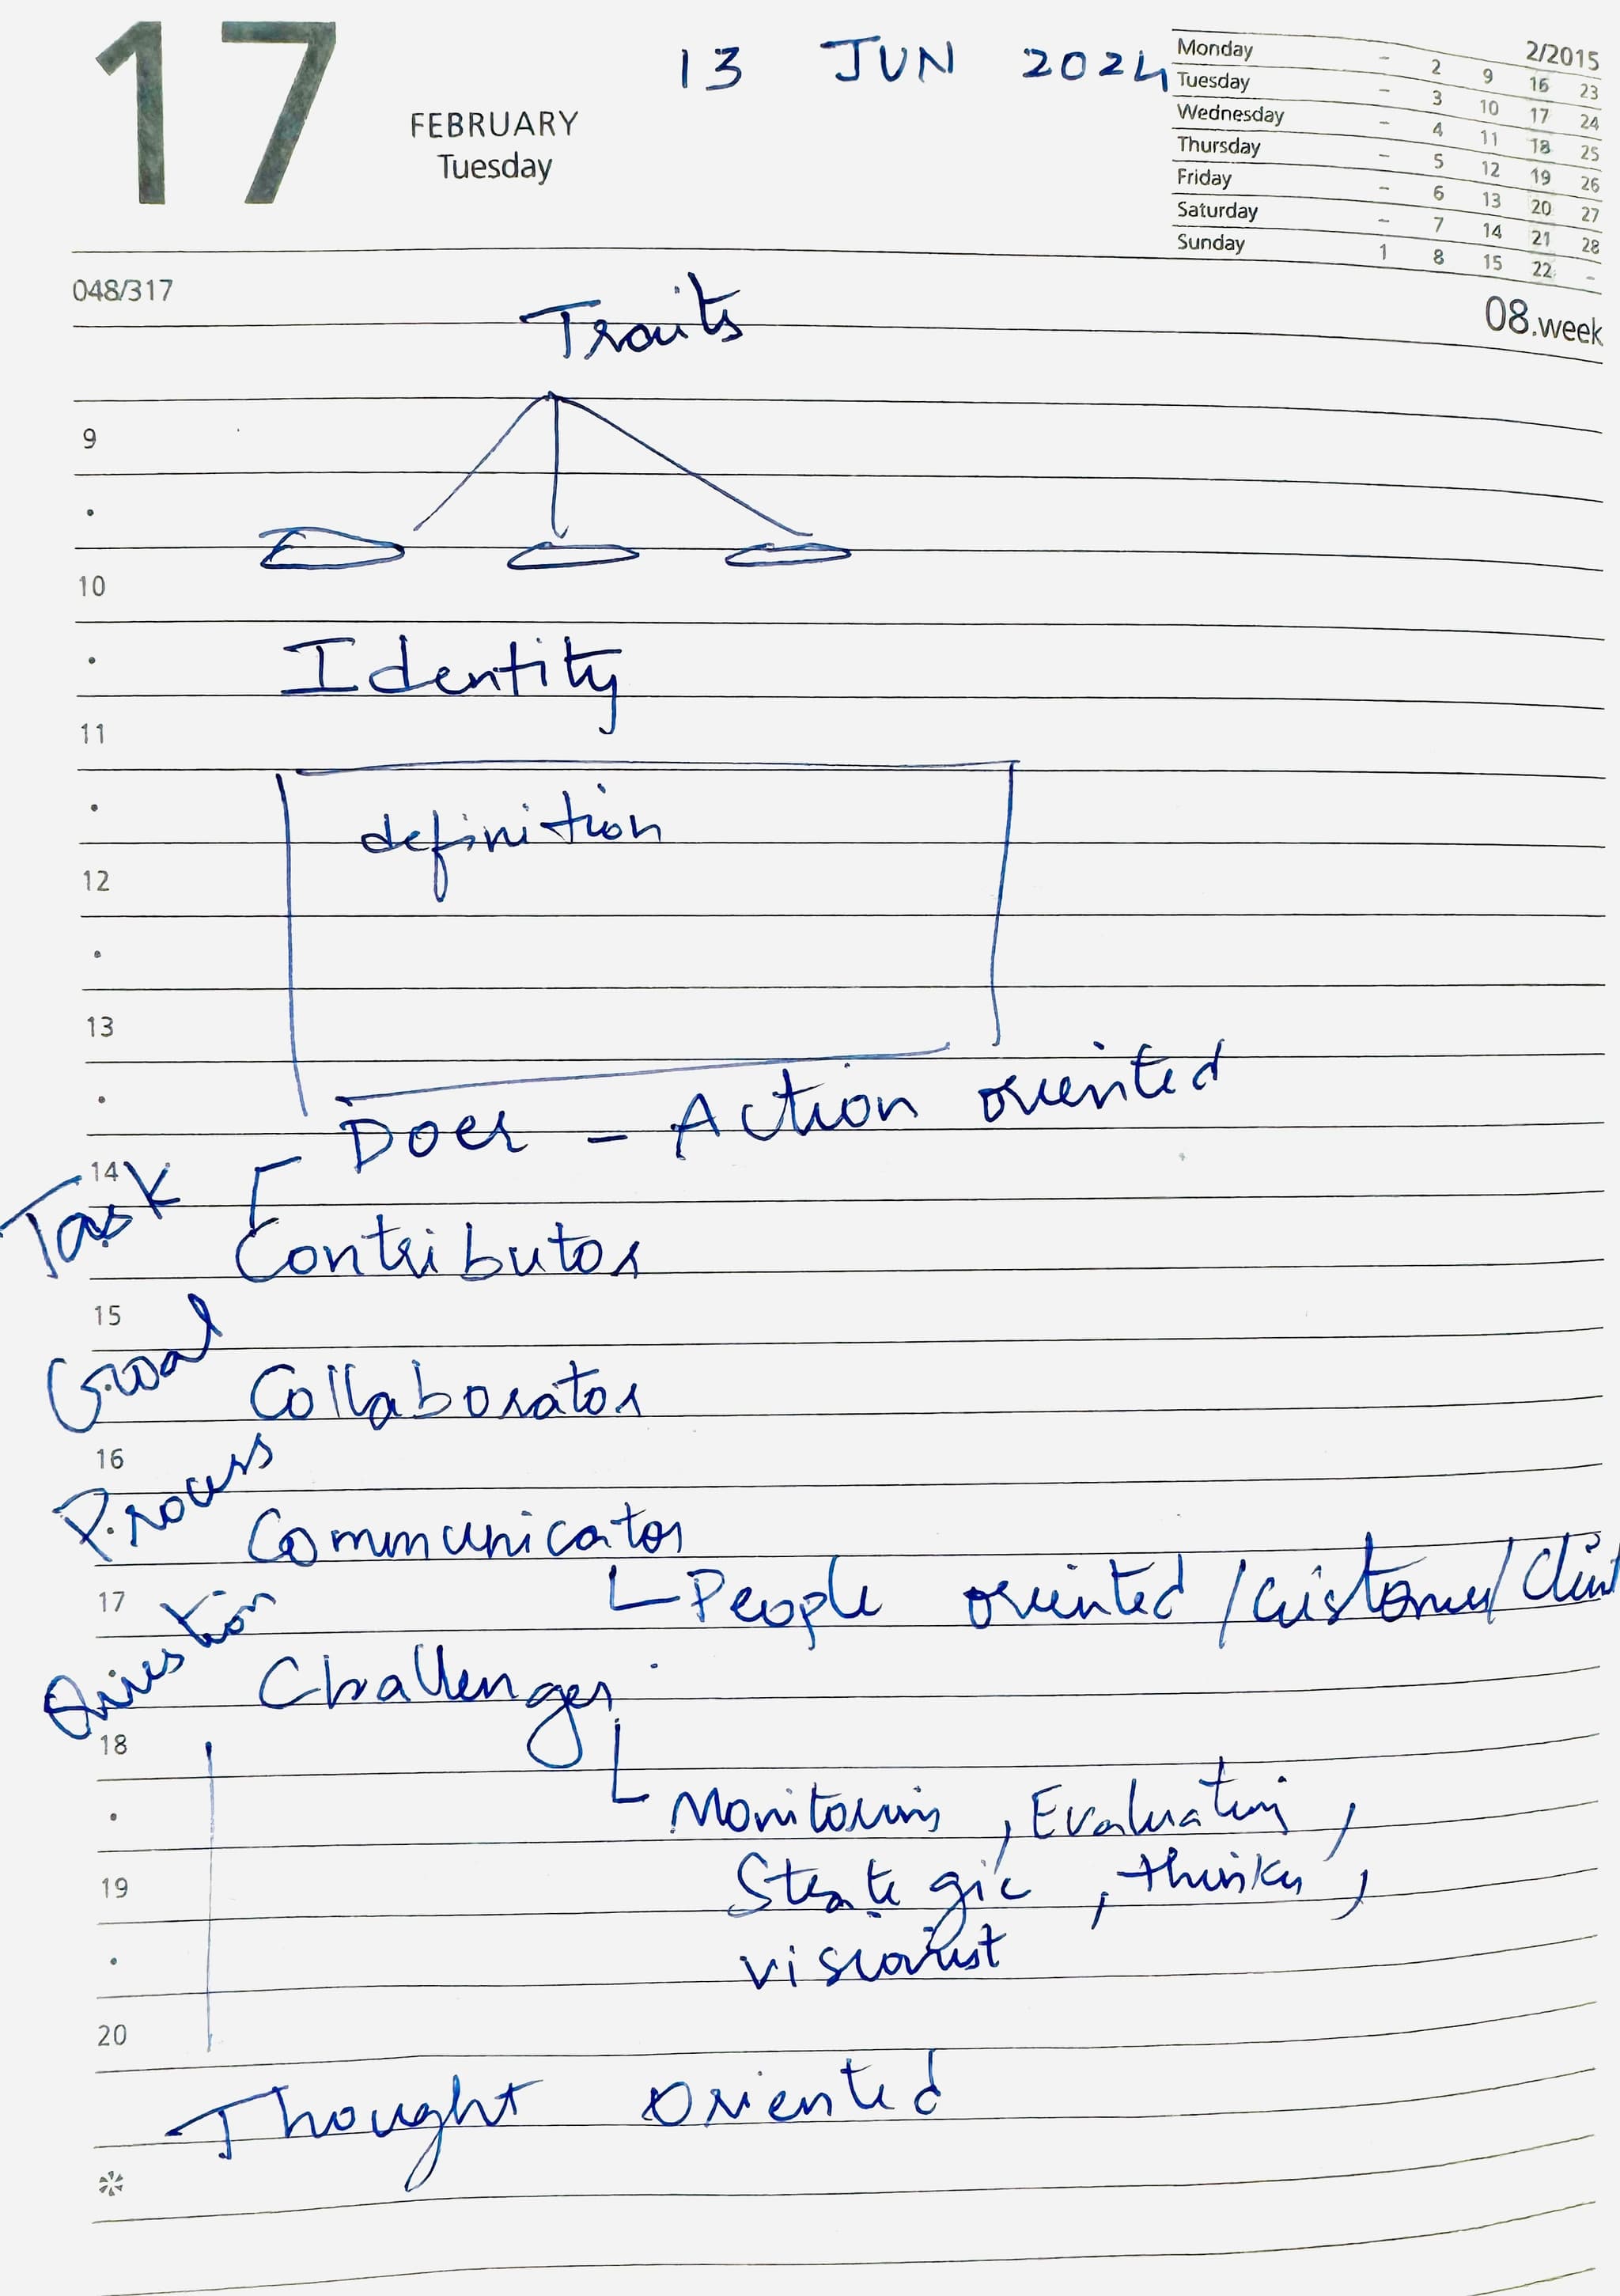 17
FEBRUARY
Tuesday
13 JUN 2024
2/2015
Monday – 2 9 16 23
Tuesday – 3 10 17 24
Wednesday – 4 11 18 25
Thursday – 5 12 19 26
Friday – 6 13 20 27
Saturday – 7 14 21 28
Sunday 1 8 15 22 –
048/317
08.week
Traits
9
10
Identity
11
definition
12
13
Doer – Action oriented
14
Task
Contributor
15
Goal
Collaborator
16
Process
Communicator
17
People oriented / Customer / Client
Question
Challenger
18
Monitoring, Evaluating,
19
Strategic, thinker,
visionist
20
Thought Oriented